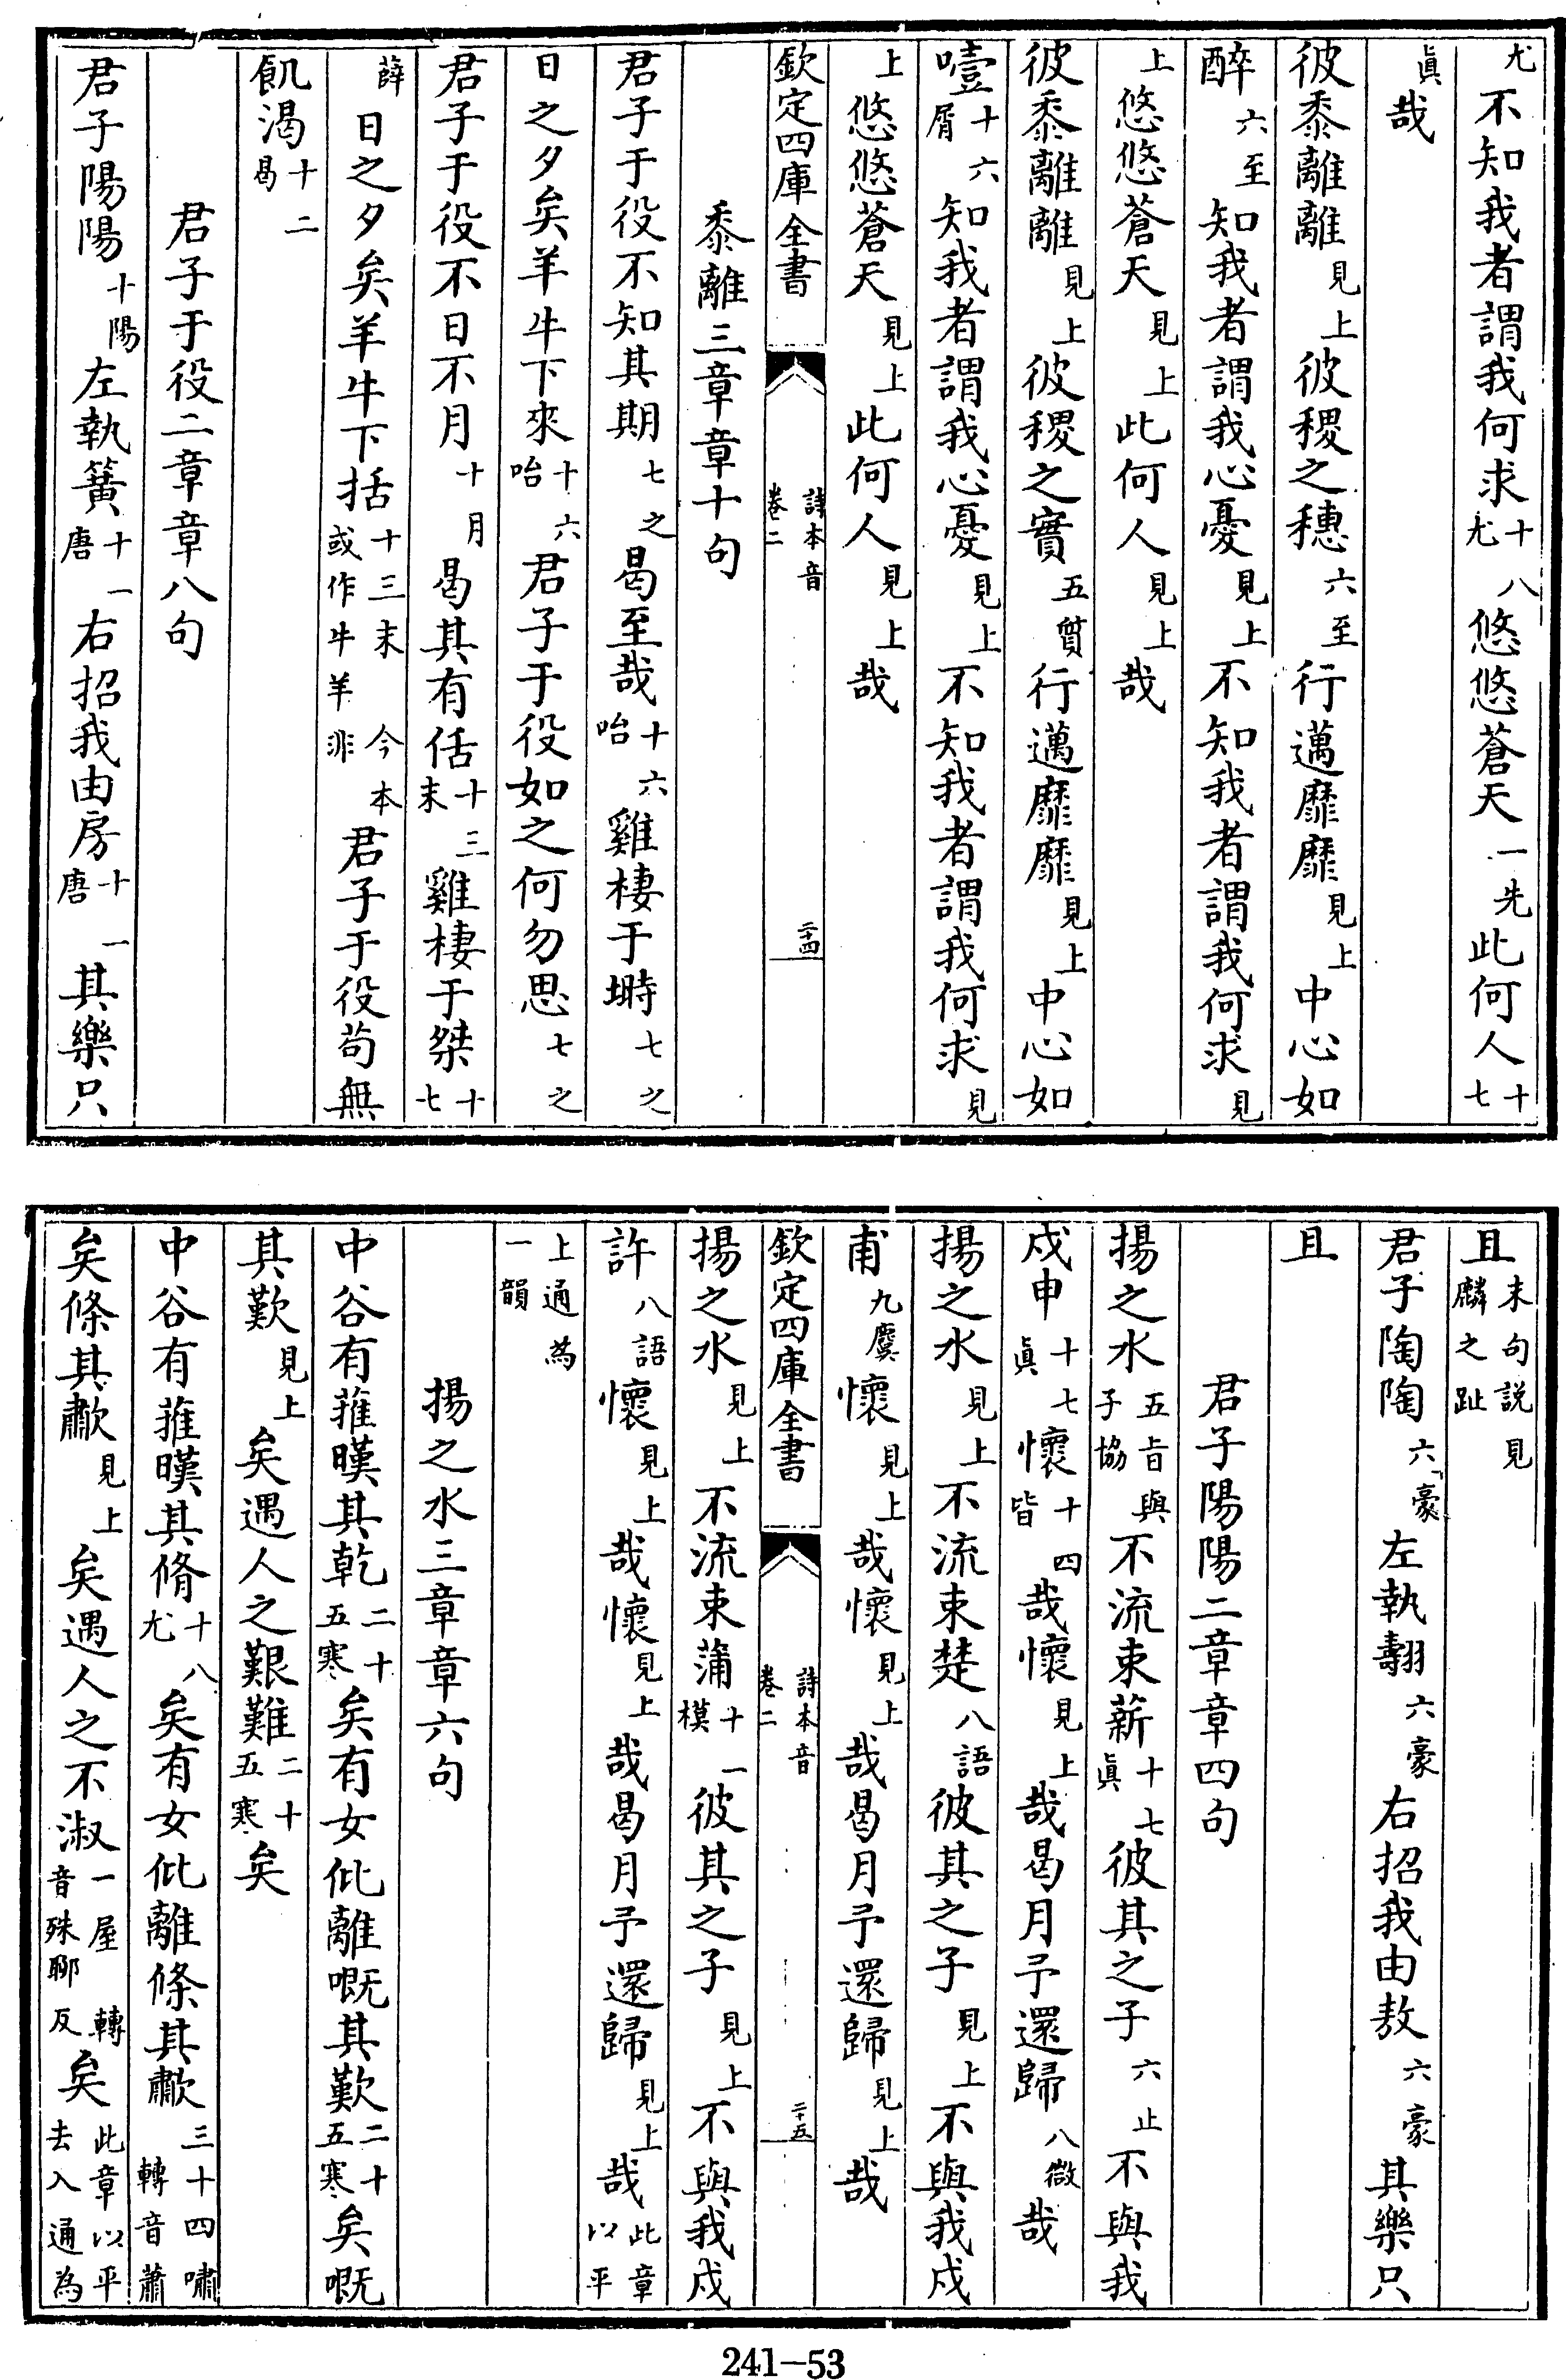 尤不知我者謂我何求十八尤悠悠蒼天一先此何人十七
眞哉
彼黍離離見上彼稷之穗六至行邁靡靡見上中心如
醉六至知我者謂我心憂見上不知我者謂我何求見
上悠悠蒼天見上此何人見上哉
彼黍離離見上彼稷之實五質行邁靡靡見上中心如
噎十六屑知我者謂我心憂見上不知我者謂我何求見
上悠悠蒼天見上此何人見上哉
欽定四庫全書 詩本音卷二 二十四
黍離三章章十句
君子于役不知其期七之曷至哉十六咍雞棲于塒七之
日之夕矣羊牛下來十六咍君子于役如之何勿思七之
君子于役不日不月十月曷其有佸十三末雞棲于桀十七
薛日之夕矣羊牛下括十三末今本或作牛羊非君子于役苟無
飢渴十二曷
君子于役二章章八句
君子陽陽十陽左執簧十一唐右招我由房十一唐其樂只
且末句説見麟之趾
君子陶陶六豪左執翿六豪右招我由敖六豪其樂只
且
君子陽陽二章章四句
揚之水五旨與子協不流束薪十七眞彼其之子六止不與我
戍申十七眞懷十四皆哉懷見上哉曷月予還歸八微哉
揚之水見上不流束楚八語彼其之子見上不與我戍
甫九麌懷見上哉懷見上哉曷月予還歸見上哉
欽定四庫全書 詩本音卷二 二十五
揚之水見上不流束蒲十一模彼其之子見上不與我戍
許八語懷見上哉懷見上哉曷月予還歸見上哉此章以平
上通為一韻
揚之水三章章六句
中谷有蓷暵其乾二十五寒矣有女仳離嘅其歎二十五寒矣嘅
其歎見上矣遇人之艱難二十五寒矣
中谷有蓷暵其脩十八尤矣有女仳離條其歗三十四嘯轉音蕭
矣條其歗見上矣遇人之不淑一屋轉音殊聊反矣此章以平去入通為
241-53